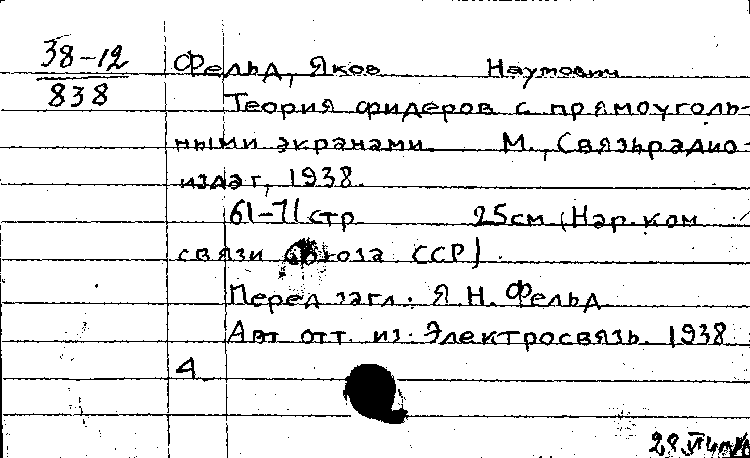 38-12
838
Фельд, Яков Наумович
Теория фидеров с прямоуголь-
ными экранами. М., Связьрадио-
издат, 1938.
61-71 стр 25см (Нар. ком
связи Союза ССР)
Перед загл.: Я.Н. Фельд
Авт отт. из: Электросвязь. 1938
4